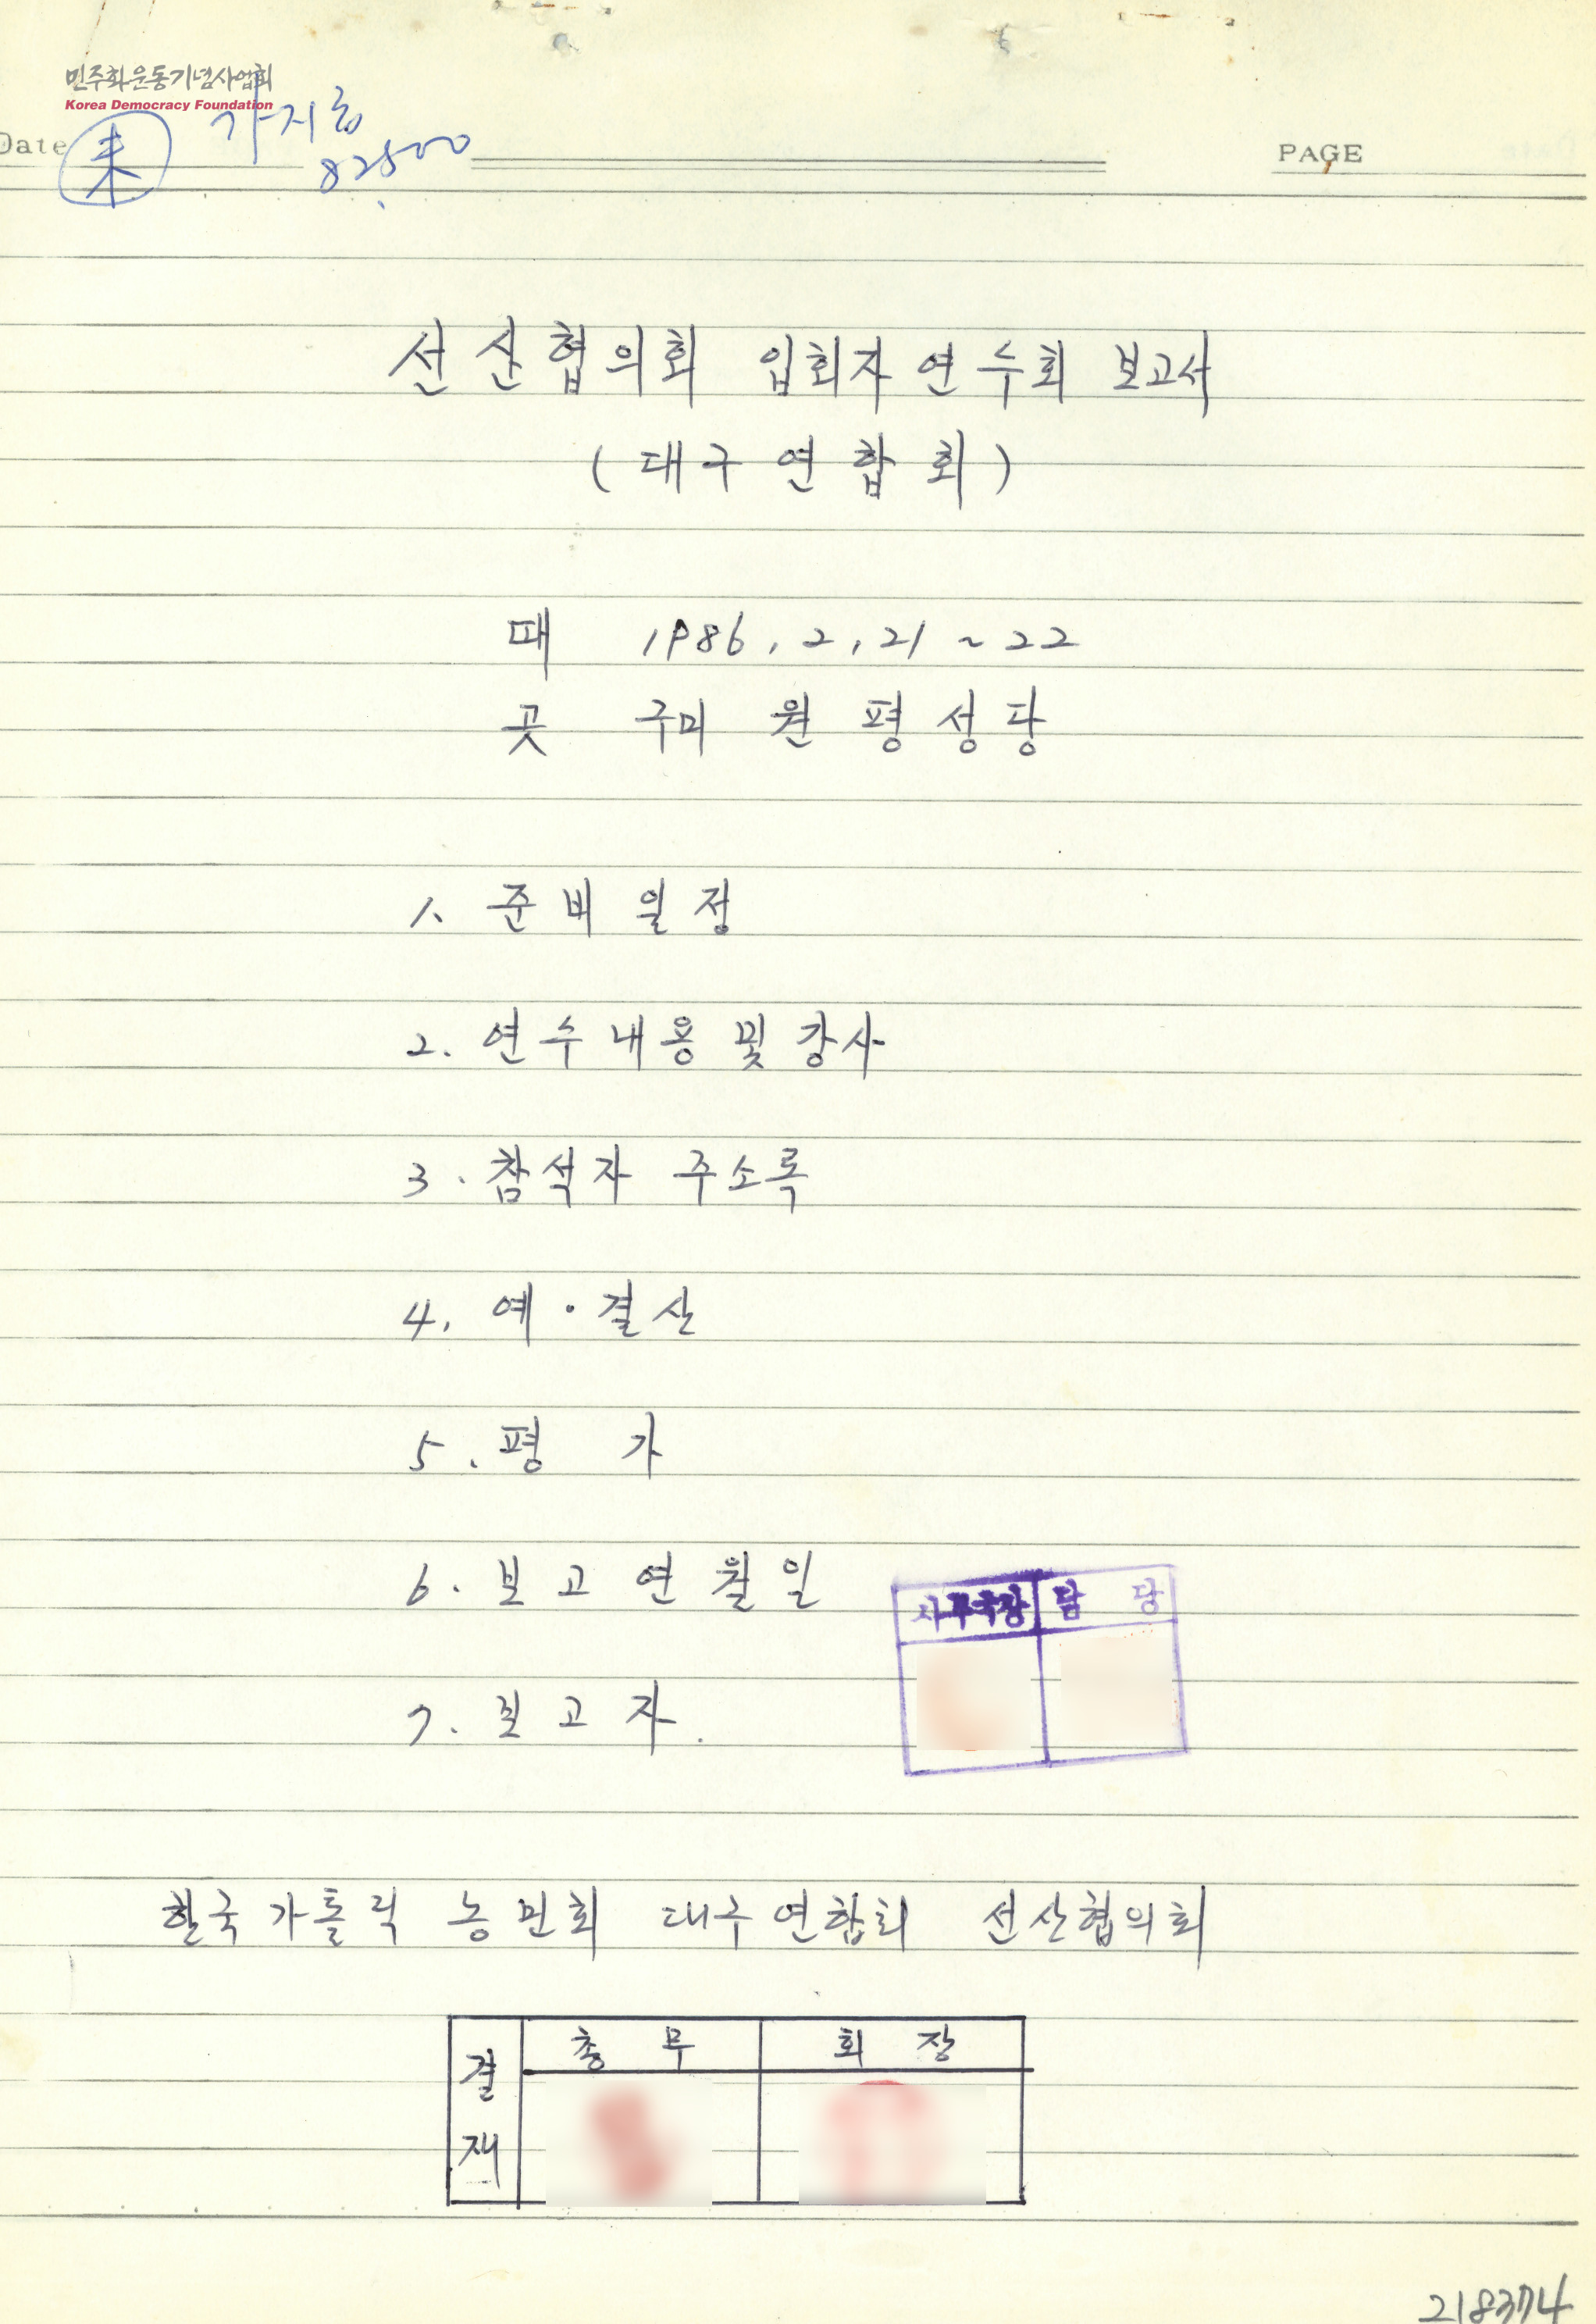 민주화운동기념사업회
Korea Democracy Foundation
Date
82500
PAGE
선산협의회 입회자 연수회 보고서
(대구연합회)
때 1986. 2. 21 ~ 22
곳 구미 원평성당
1. 준비일정
2. 연수내용 및 강사
3. 참석자 주소록
4. 예·결산
5. 평 가
6. 보고연월일
7. 보고자.
사무국장 담 당
한국가톨릭 농민회 대구연합회 선산협의회
결재 총 무 회 장
218374